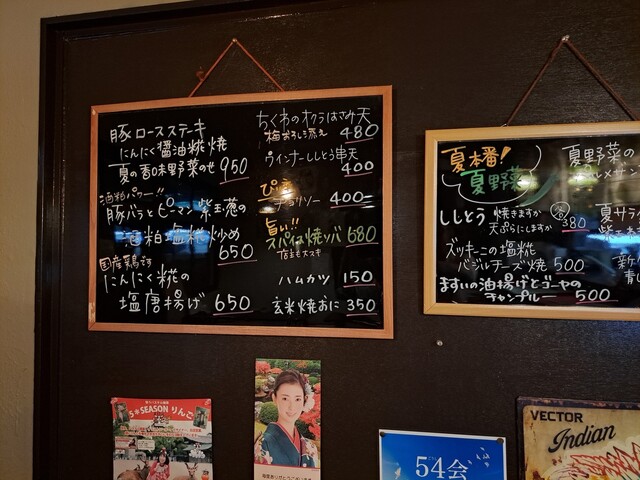 豚ロースステーキ
にんにく醤油糀焼
夏の香味野菜のせ 950
酒粕パワー!!
豚バラとピーマン 紫玉葱の
酒粕塩糀炒め
650
国産鶏です
にんにく糀の
塩唐揚げ 650
ちくわのオクラはさみ天
梅おろし添え 480
ウインナーししとう串天
400
チョリソー 400
旨い!!
スパイス焼ソバ 680
店主もスキ
ハムカツ 150
玄米焼おに 350
夏本番!
夏野菜
ししとう 焼きますか
天ぷらにしますか 各380
ズッキーニの塩糀
バジルチーズ焼 500
ますいの油揚げとゴーヤの
チャンプルー 500
夏野菜の
夏サラ
SEASON りんご
54会
VECTOR
Indian